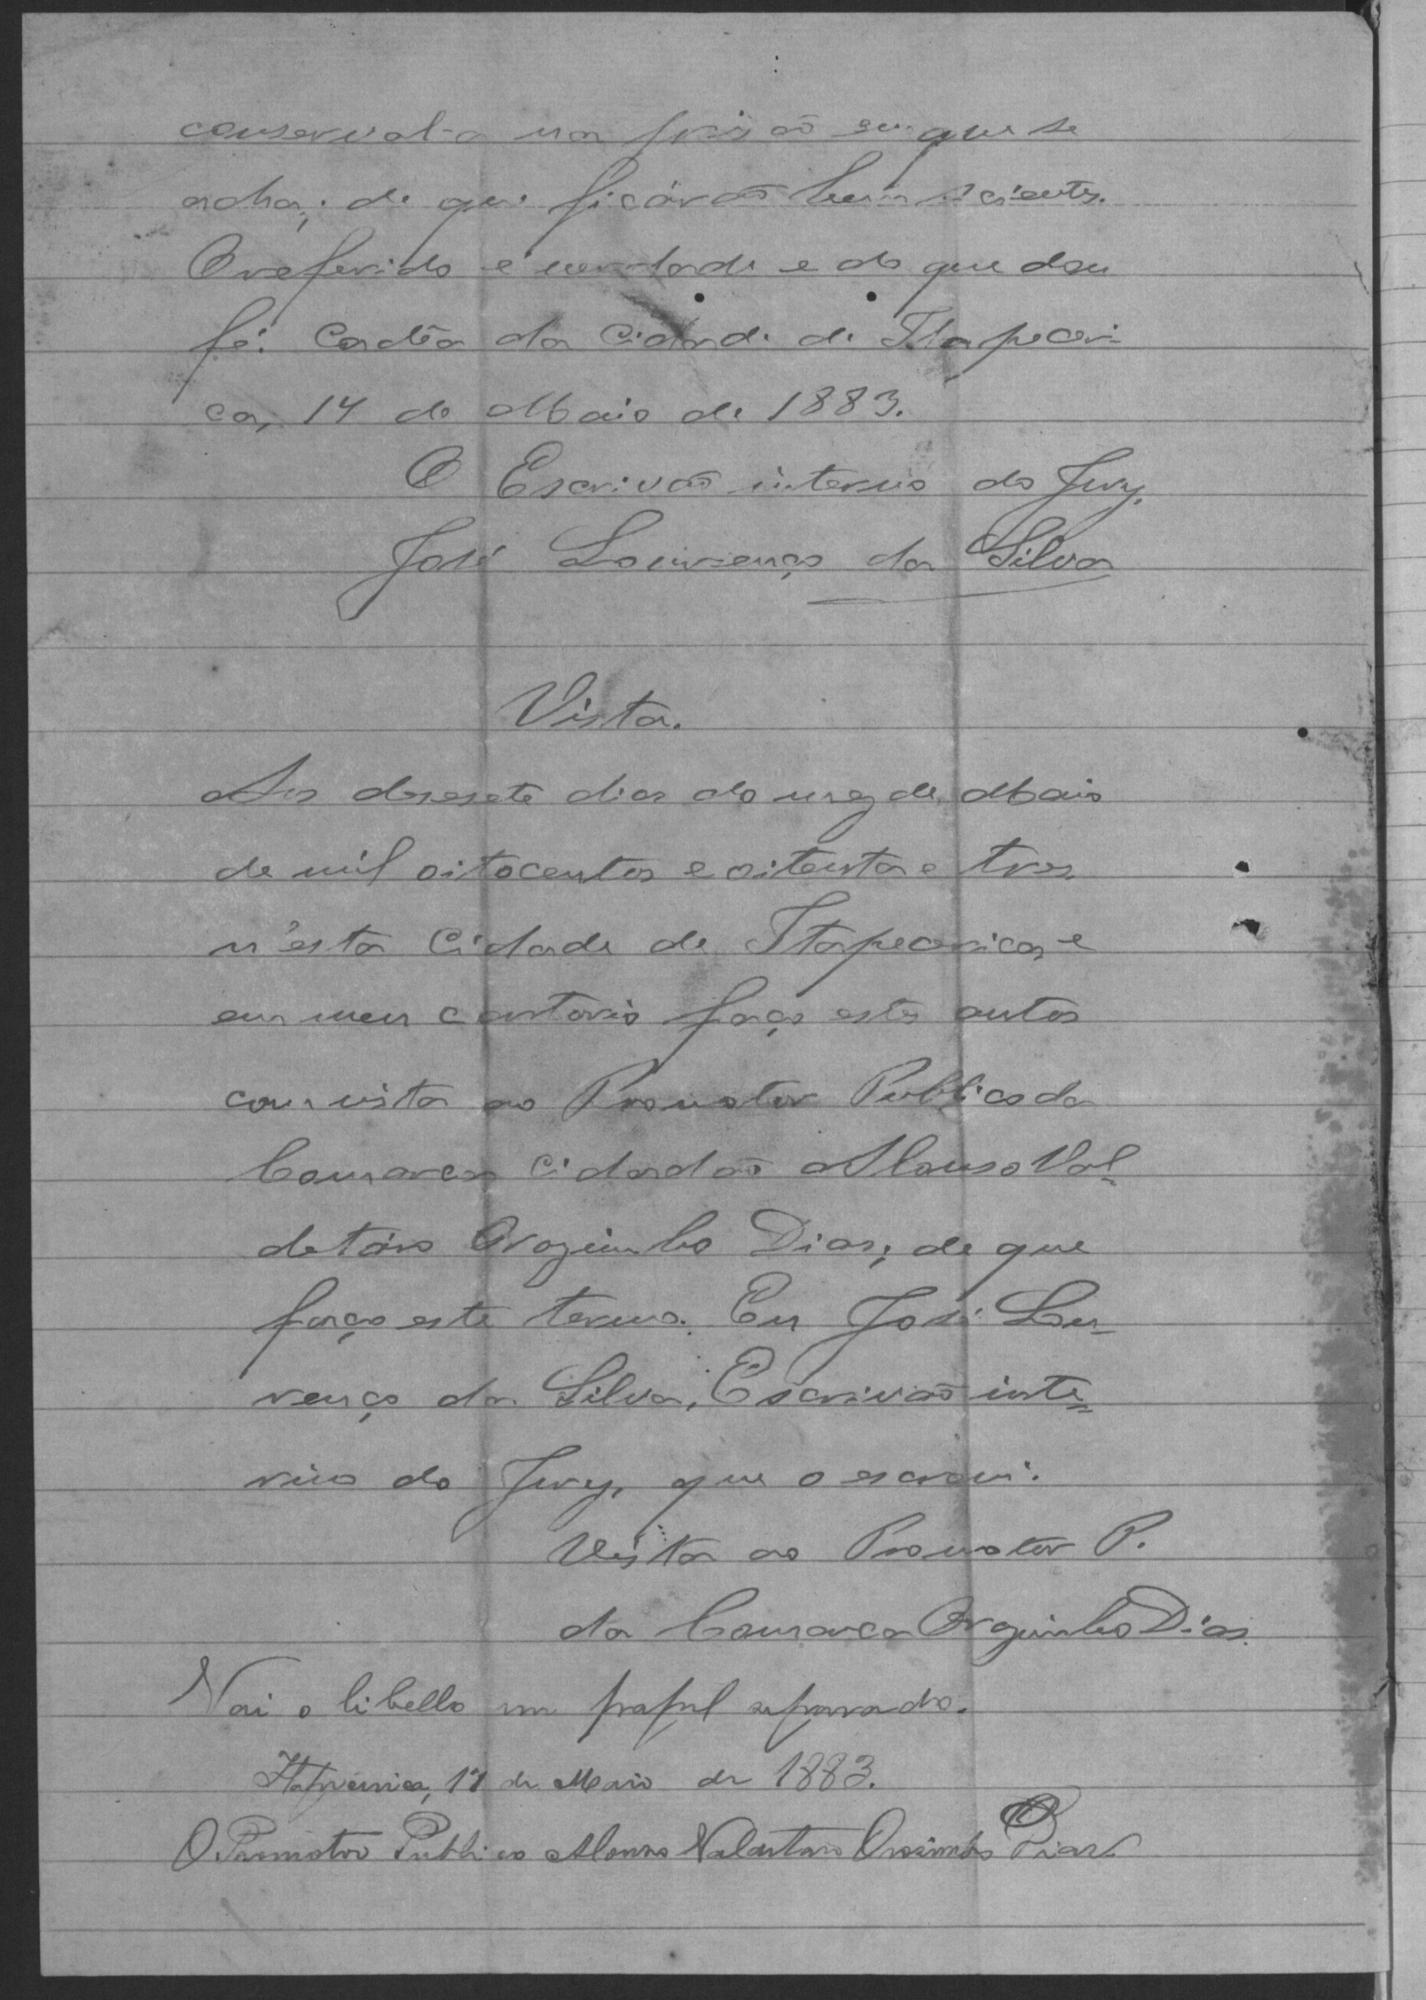 conserval-a na prisão em que se
acha; de que ficárão bem scientes.
O referido é verdade e do que dou
fé. Cadêa da Cidade de Itapeceri-
ca, 14 de Maio de 1883.
O Escrivão interino do Jury,
José Lourenço da Silva
Vista.
Aos desesete dias do mez de Maio
de mil oitocentos e oitenta e tres
n'esta Cidade de Itapecerica, e
em meu cartorio faço estes autos
com vista ao Promotor Publico da
Comarca Cidadão Alonso Val-
detáro Orozimbo Dias; de que
faço este termo. Eu José Lou-
renço da Silva, Escrivão inte-
rino do Jury, que o escrevi.
Vista ao Promotor P.
da Comarca Orozimbo Dias.
Vai o libello em papel separado.
Itapecerica, 17 de Maio de 1883.
O Promotor Publico Alonso Valdetaro Orosimbo Dias.